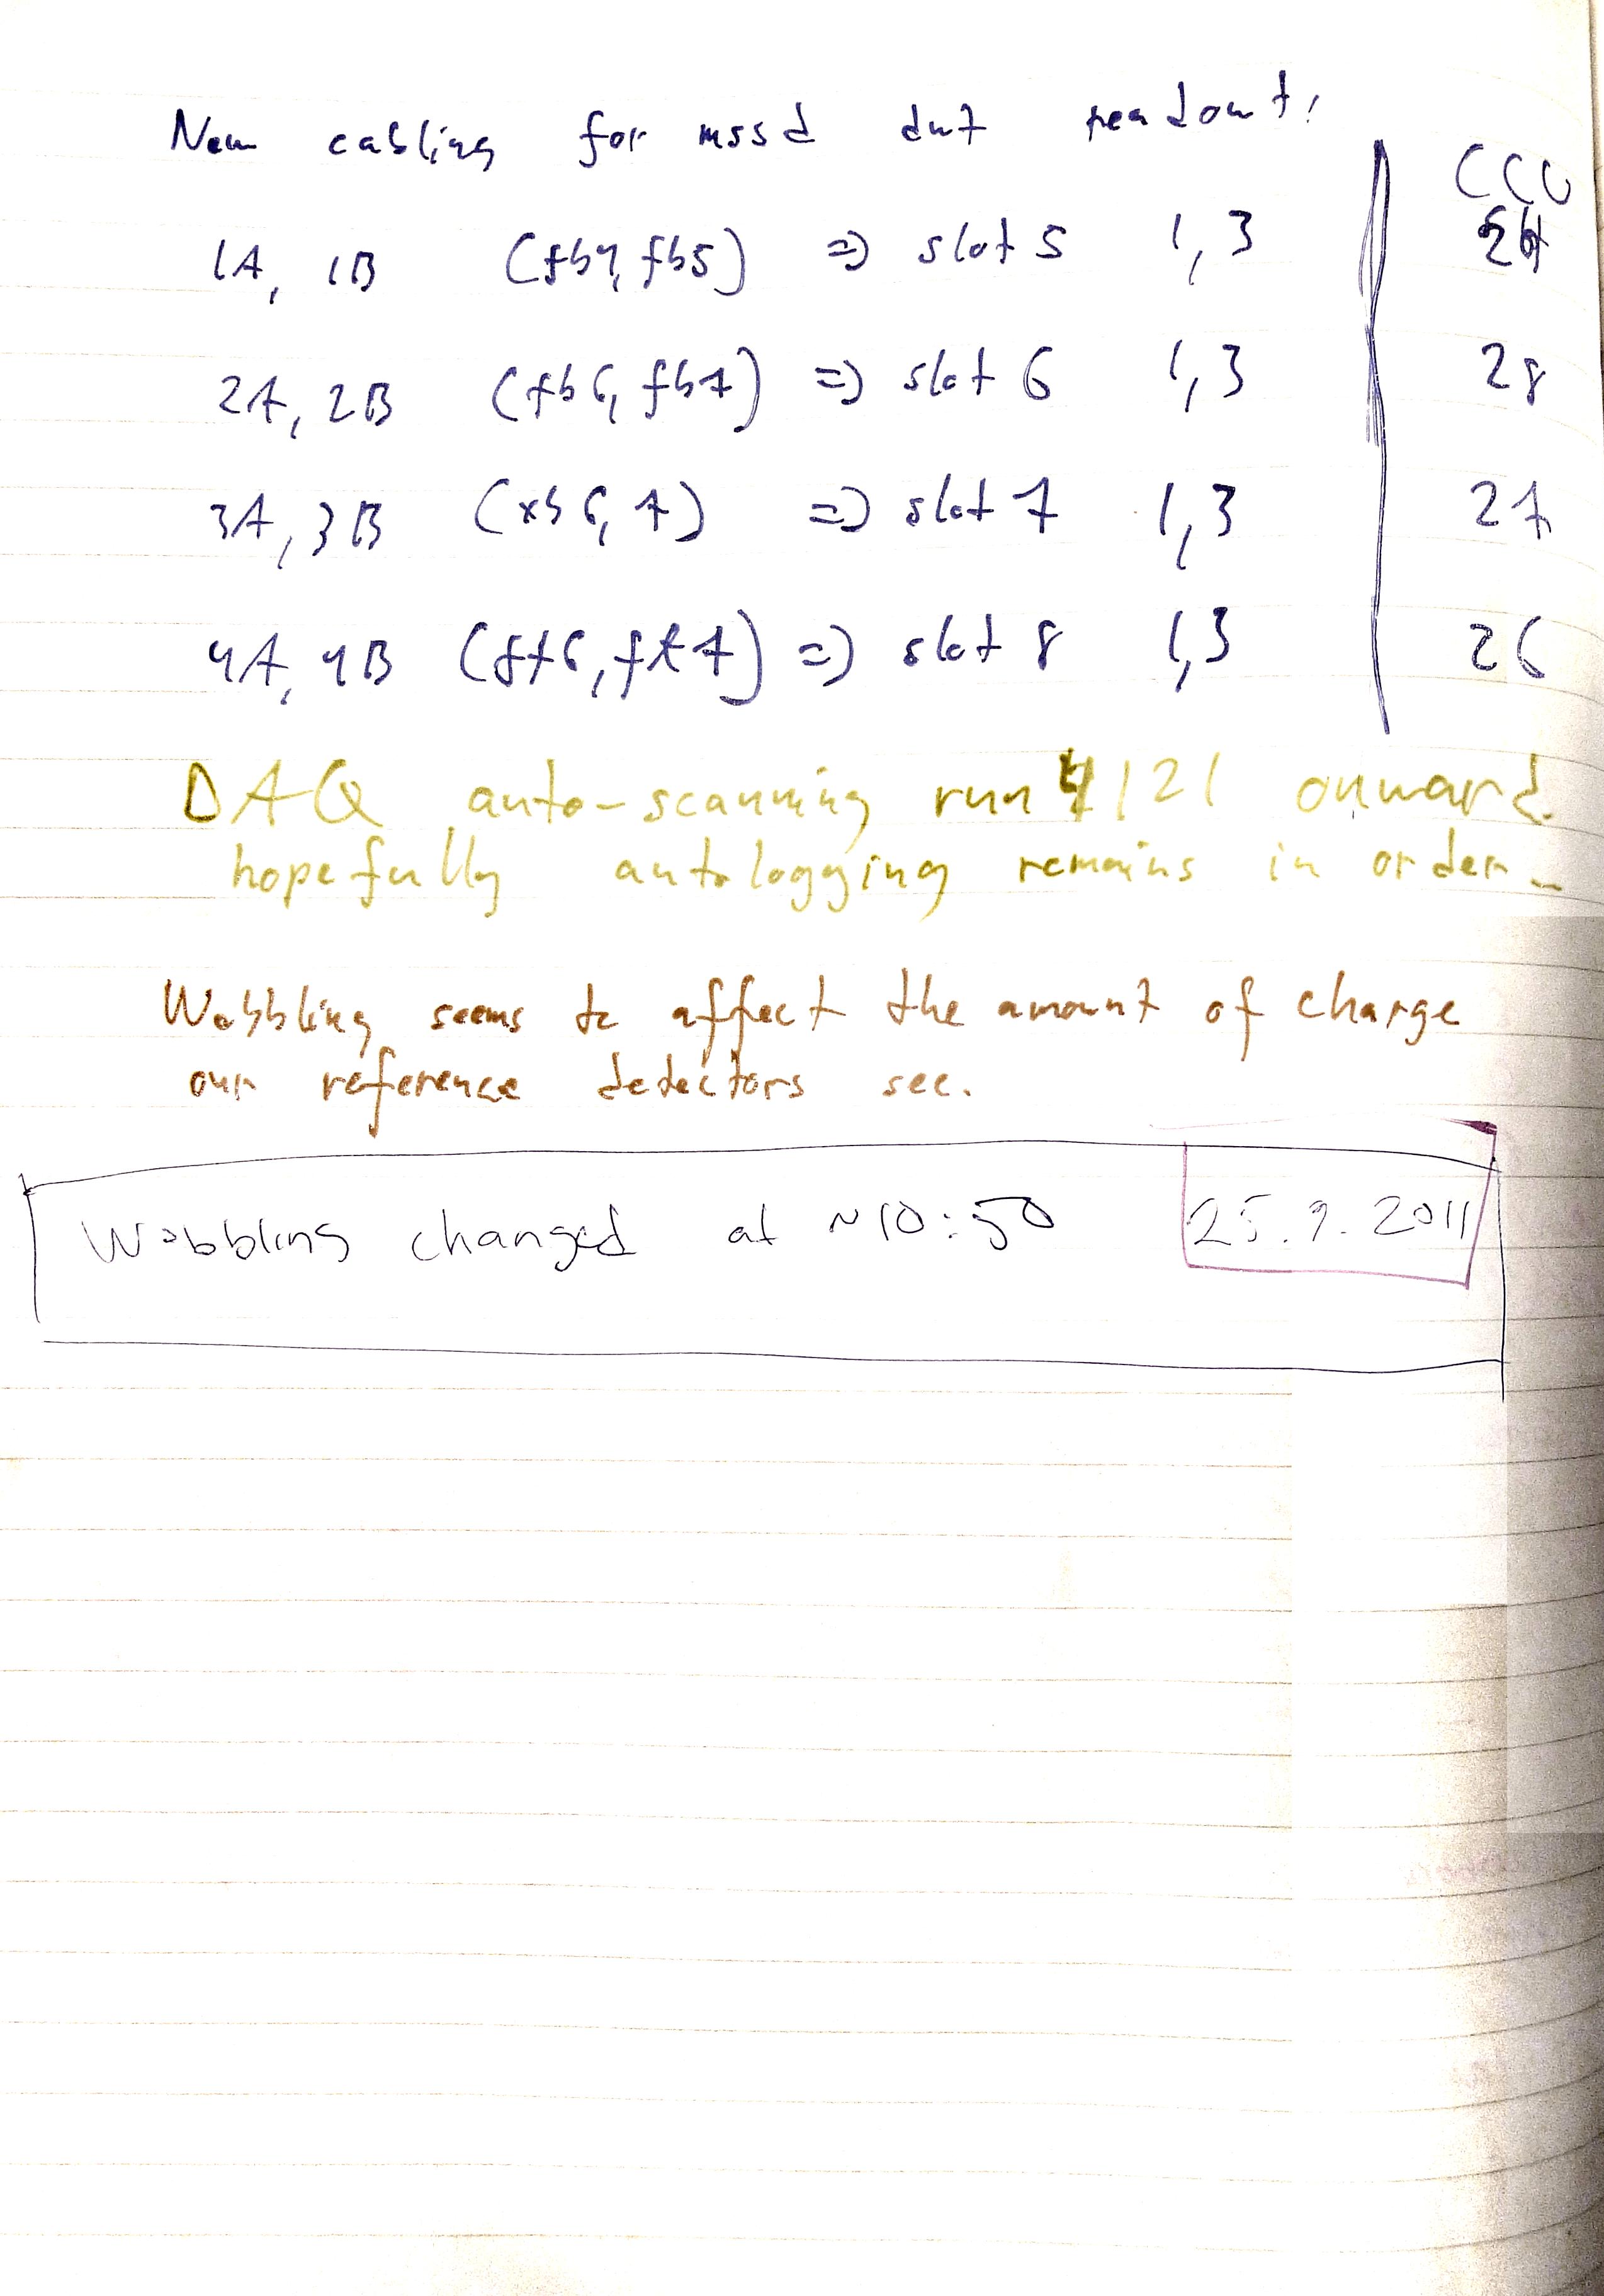 New cabling for mssd dut readout:
CCU
1A, 1B (fb4, fb5) => slot 5 1, 3
2A, 2B (fb6, fb7) => slot 6 1, 3 28
3A, 3B (xb6, 7) => slot 7 1, 3 27
4A, 4B (ft6, ft7) => slot 8 1,3 26
DAQ auto-scanning run 4121 onward
hopefully autologging remains in order...
Wobbling seems to affect the amount of charge
our reference detectors see.
Wobbling changed at ~10:50 25.9.2011